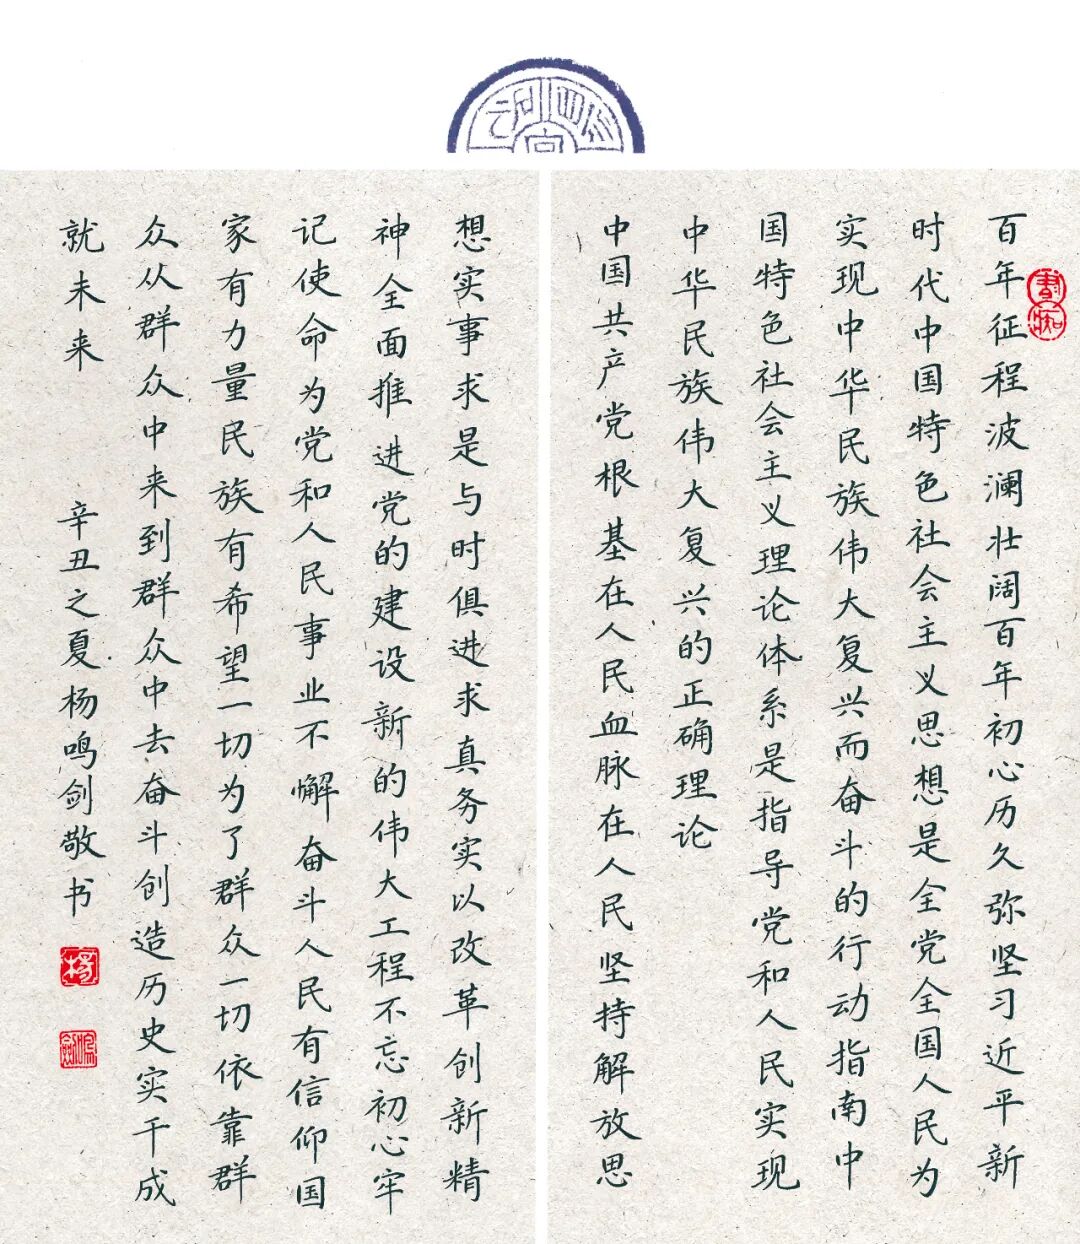 百年征程波澜壮阔百年初心历久弥坚习近平新
时代中国特色社会主义思想是全党全国人民为
实现中华民族伟大复兴而奋斗的行动指南中
国特色社会主义理论体系是指导党和人民实现
中华民族伟大复兴的正确理论
中国共产党根基在人民血脉在人民坚持解放思
想实事求是与时俱进求真务实以改革创新精
神全面推进党的建设新的伟大工程不忘初心牢
记使命为党和人民事业不懈奋斗人民有信仰国
家有力量民族有希望一切为了群众一切依靠群
众从群众中来到群众中去奋斗创造历史实干成
就未来 辛丑之夏杨鸣剑敬书